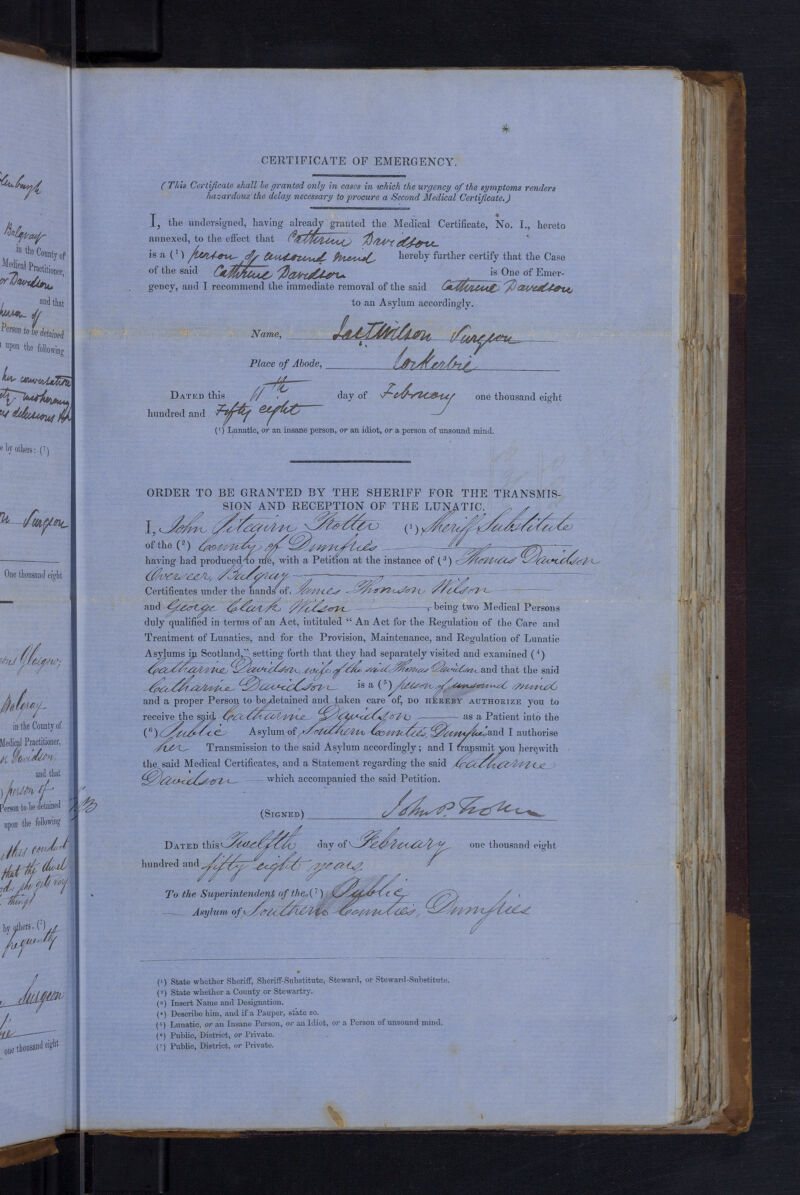 *
CERTIFICATE OF EMERGENCY.
(This Certificate shall be granted only in cases in which the urgency of the symptoms renders
hazardous the delay necessary to procure a Second Medical Certificate.)
I, the undersigned, having already granted the Medical Certificate, No. I., hereto
annexed, to the effect that Catherine Davidson
is a (1) person of unsound mind hereby further certify that the Case
of the said Catherine Davidson is One of Emer-
gency, and I recommend the immediate removal of the said Catherine Davidson
to an Asylum accordingly.
Name, Jas T Wilson Surgeon
Place of Abode, Lockerbie
DATED this 11th day of February one thousand eight
hundred and Fifty eight
(1) Lunatic, or an insane person, or an idiot, or a person of unsound mind.
ORDER TO BE GRANTED BY THE SHERIFF FOR THE TRANSMIS-
SION AND RECEPTION OF THE LUNATIC.
I, John Pitcairn Trotter (1) Sheriff Substitute
of the (2) County of Dumfries
having had produced to me, with a Petition at the instance of (3) Thomas Davidson
Overseer, Balgray
Certificates under the hands of James Thomson Wilson
and George Clark Wilson, being two Medical Persons
duly qualified in terms of an Act, intituled "An Act for the Regulation of the Care and
Treatment of Lunatics, and for the Provision, Maintenance, and Regulation of Lunatic
Asylums in Scotland," setting forth that they had separately visited and examined (4)
Catharine Davidson wife of the said Thomas Davidson and that the said
Catharine Davidson is a (5) person of unsound mind
and a proper Person to be detained and taken care of, DO HEREBY AUTHORIZE you to
receive the said Catharine Davidson as a Patient into the
(6) Public Asylum of Southern Counties, Dumfries and I authorise
her Transmission to the said Asylum accordingly; and I transmit you herewith
the said Medical Certificates, and a Statement regarding the said Catharine
Davidson which accompanied the said Petition.
(SIGNED) John P. Trotter
DATED this Twelfth day of February one thousand eight
hundred and fifty eight years.
To the Superintendent of the (7) Public
Asylum of Southern Counties, Dumfries
(1) State whether Sheriff, Sheriff-Substitute, Steward, or Steward-Substitute.
(2) State whether a County or Stewartry.
(3) Insert Name and Designation.
(4) Describe him, and if a Pauper, state so.
(5) Lunatic, or an Insane Person, or an Idiot, or a Person of unsound mind.
(6) Public, District, or Private.
(7) Public, District, or Private.
Balgray
in the County of
Medical Practitioner,
or Davidson
and that
person of
Person to be detained
upon the following
her conversation
by others: (7)
Surgeon
One thousand eight
Balgray
in the County of
Medical Practitioner,
Davidson
and that
person of
Person to be detained
upon the following
by others. (7)
frequently
Surgeon
one thousand eight